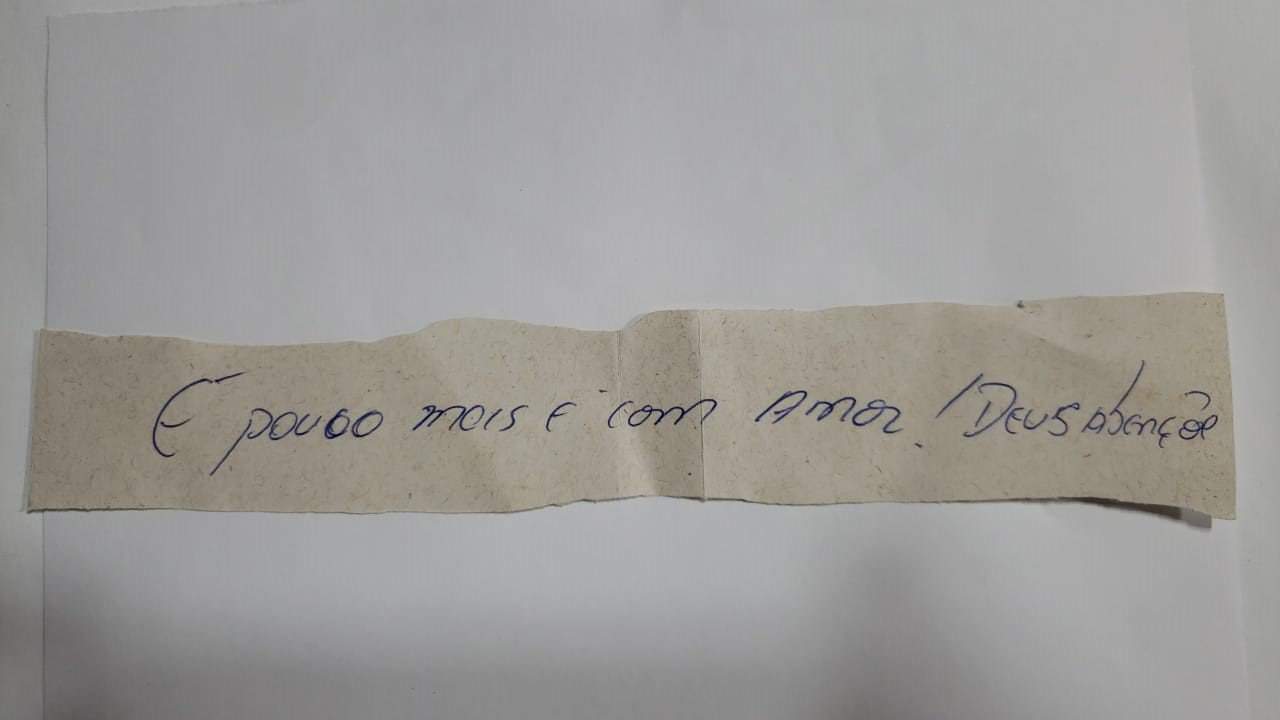 É pouco mais e com Amor! Deus abençõe